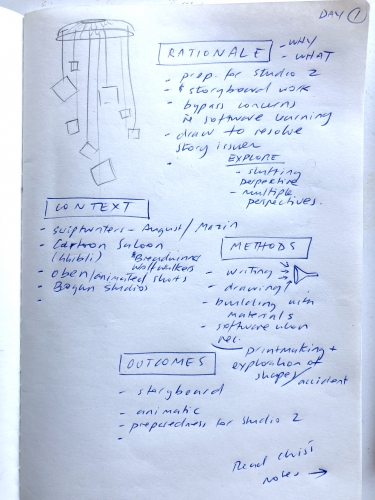 DAY 1
RATIONALE - WHY
- WHAT
- prep. for studio 2
- storyboard work
- bypass concerns
re software learning
- draw to resolve
story issues
-
EXPLORE
- shifting
perspective
- multiple
perspectives.
CONTEXT
- scriptwriters - August/Mazin
- Cartoon Saloon
(Ghibli) * Breadwinner
Wolfwalkers
- oben/animated shorts
- Began studios
-
METHODS
- writing
- drawing
- building with
materials
- software when
nec.
printmaking +
exploration of
shapes/accident
OUTCOMES
- storyboard
- animatic
- preparedness for studio 2
-
Read
notes →